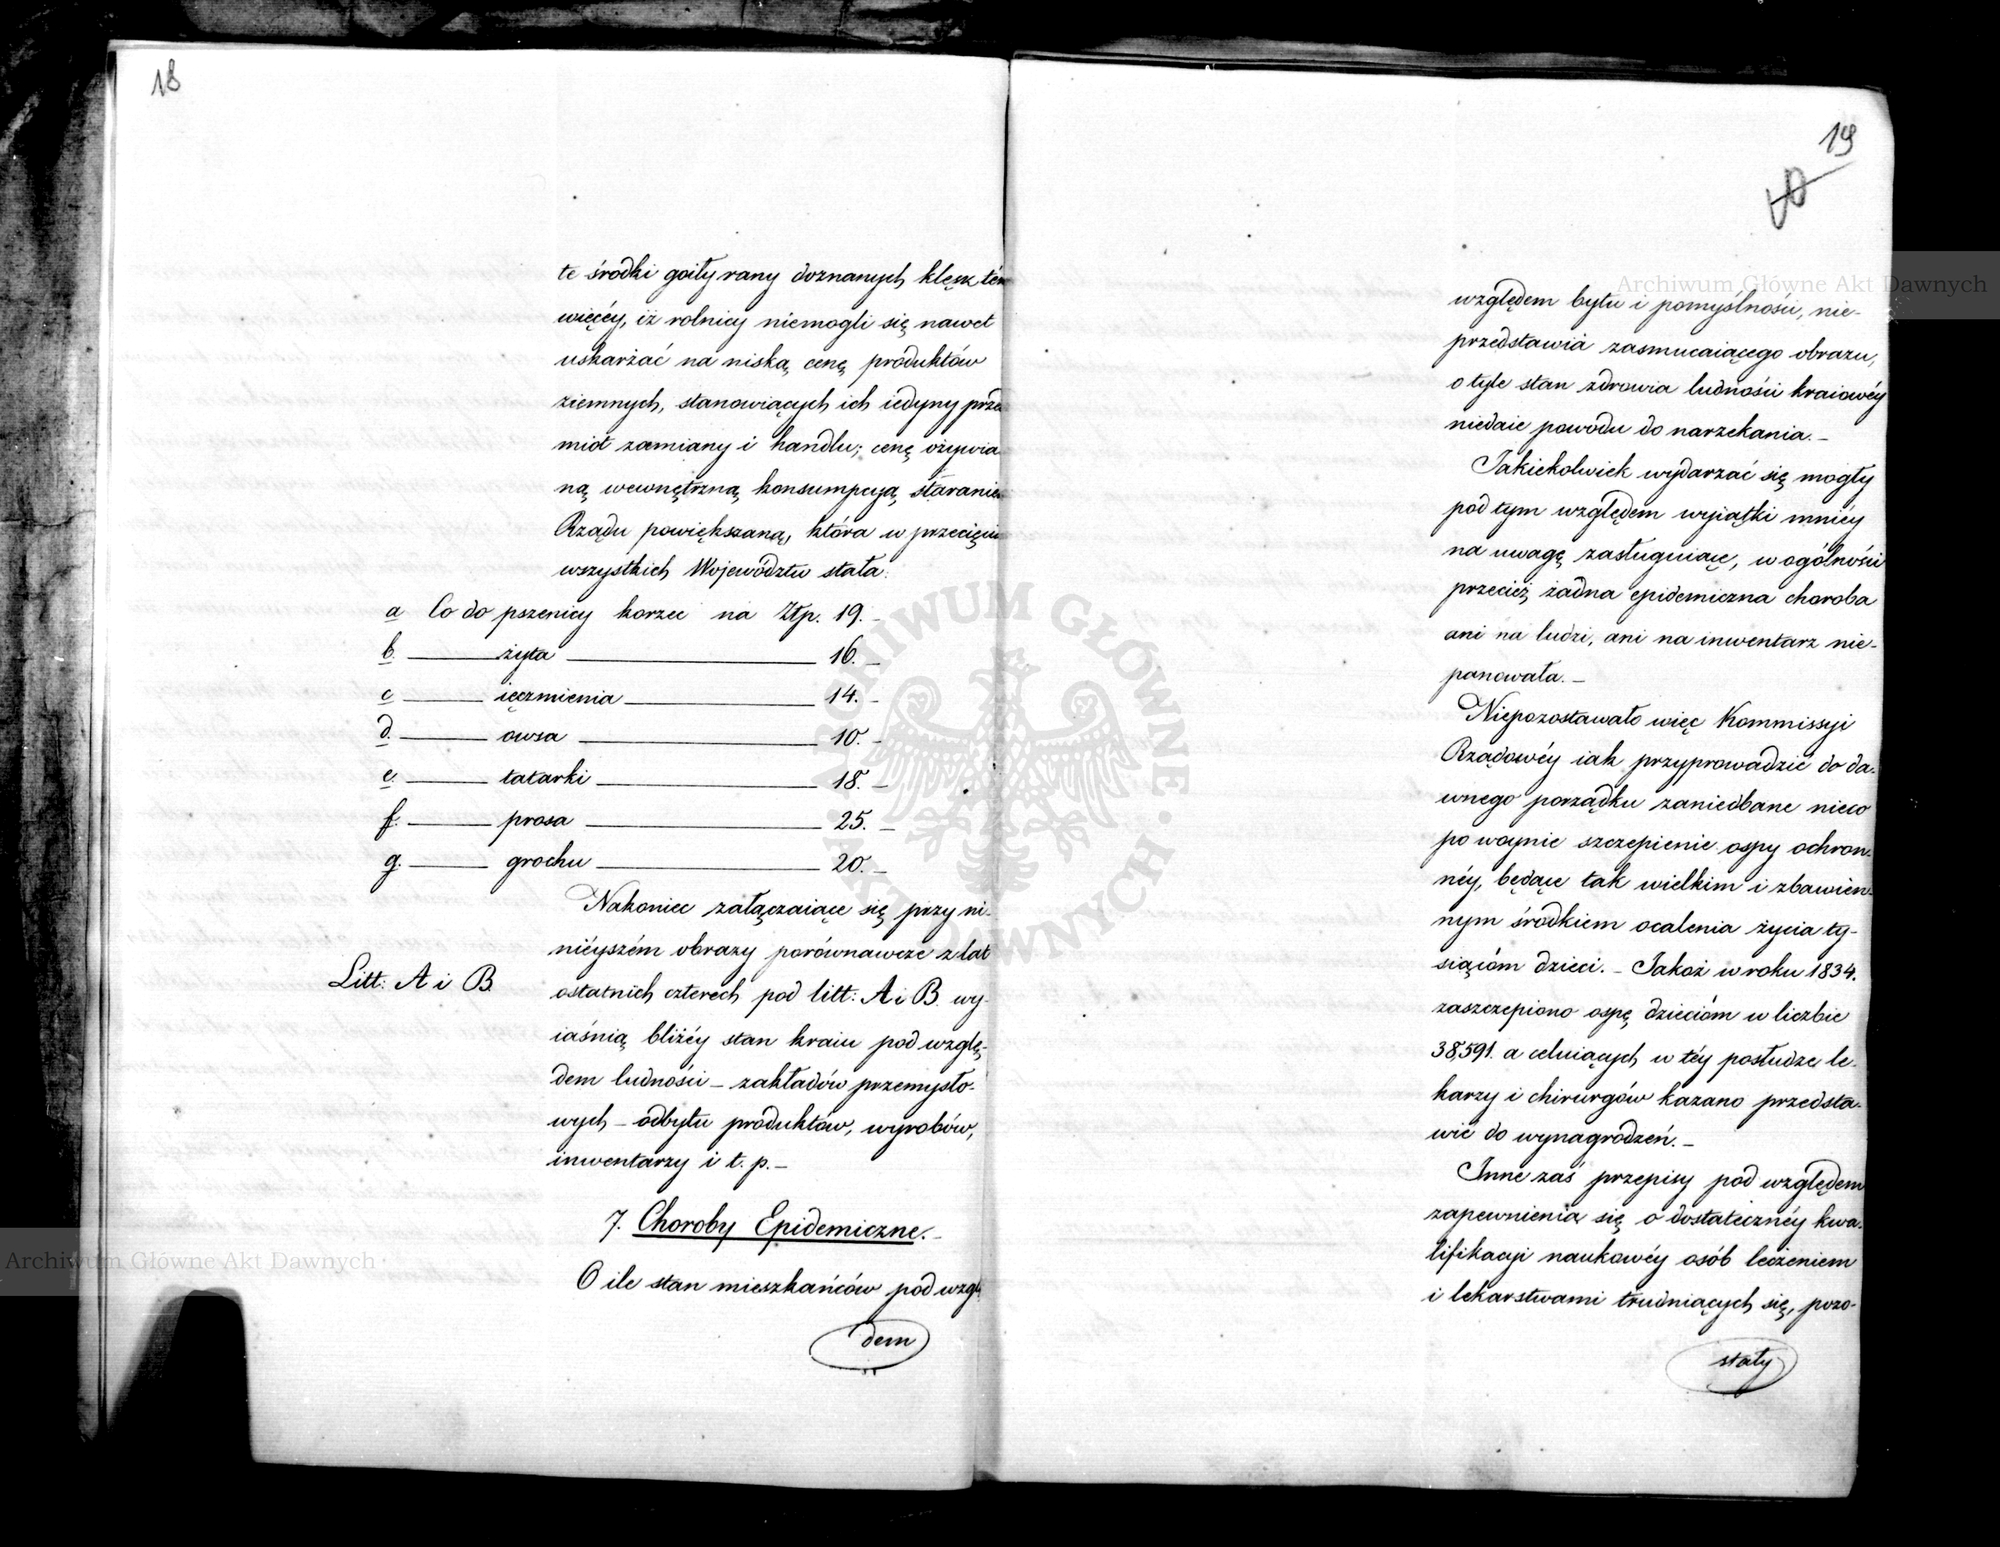 18
te środki goiły rany doznanych klęsk tém
więcéy, iż rolnicy niemogli się nawet
uskarżać na niską cenę produktów
ziemnych, stanowiących ich iedyny prze
miot zamiany i handlu; cenę ożywia
ną wewnętrzną konsumpcyą, staranie
Rządu powiększaną, która w przecięciu
wszystkich Województw stała:
a Co do pszenicy korzec na Złp. 19. –
b. żyta 16. –
c ięczmienia 14. –
d. owsa 10. –
e. tatarki 18. –
f. prosa 25. –
g. grochu 20. –
Nakoniec załączaiące się przy ni-
nieyszém obrazy porównawcze z lat
Litt: A i B. ostatnich czterech pod litt: A i B. wy-
iaśnią bliżéy stan kraiu pod wzglę-
dem ludności – zakładów przemysło-
wych – odbytu produktów, wyrobów,
inwentarzy i t. p. –
7. Choroby Epidemiczne. –
O ile stan mieszkańców pod wzglę
dem
19
względem bytu i pomyślności, nie-
przedstawia zasmucaiącego obrazu,
o tyle stan zdrowia ludności kraiowéy
niedaie powodu do narzekania. –
Jakiekolwiek wydarzać się mogły
pod tym względem wyiątki mniéy
na uwagę zasługuiące, w ogólności
przecież żadna epidemiczna choroba
ani na ludzi, ani na inwentarz nie-
panowała. –
Niepozostawało więc Kommissyi
Rządowéy iak przyprowadzić do da-
wnego porządku zaniedbane nieco
po woynie szczepienie ospy ochron-
néy, będące tak wielkim i zbawien-
nym środkiem ocalenia życia ty-
siącóm dzieci. – Jakoż w roku 1834.
zaszczepiono ospę dziecióm w liczbie
38,591. a celuiących w téy posłudze le-
karzy i chirurgów kazano przedsta-
wić do wynagrodzeń. –
Inne zaś przepisy pod względem
zapewnienia się o dostatecznéy kwa-
lifikacyi naukowéy osób leczeniem
i lekarstwami trudniących się, pozo-
stały
Archiwum Główne Akt Dawnych
Archiwum Główne Akt Dawnych
· ARCHIWUM GŁÓWNE · AKT DAWNYCH